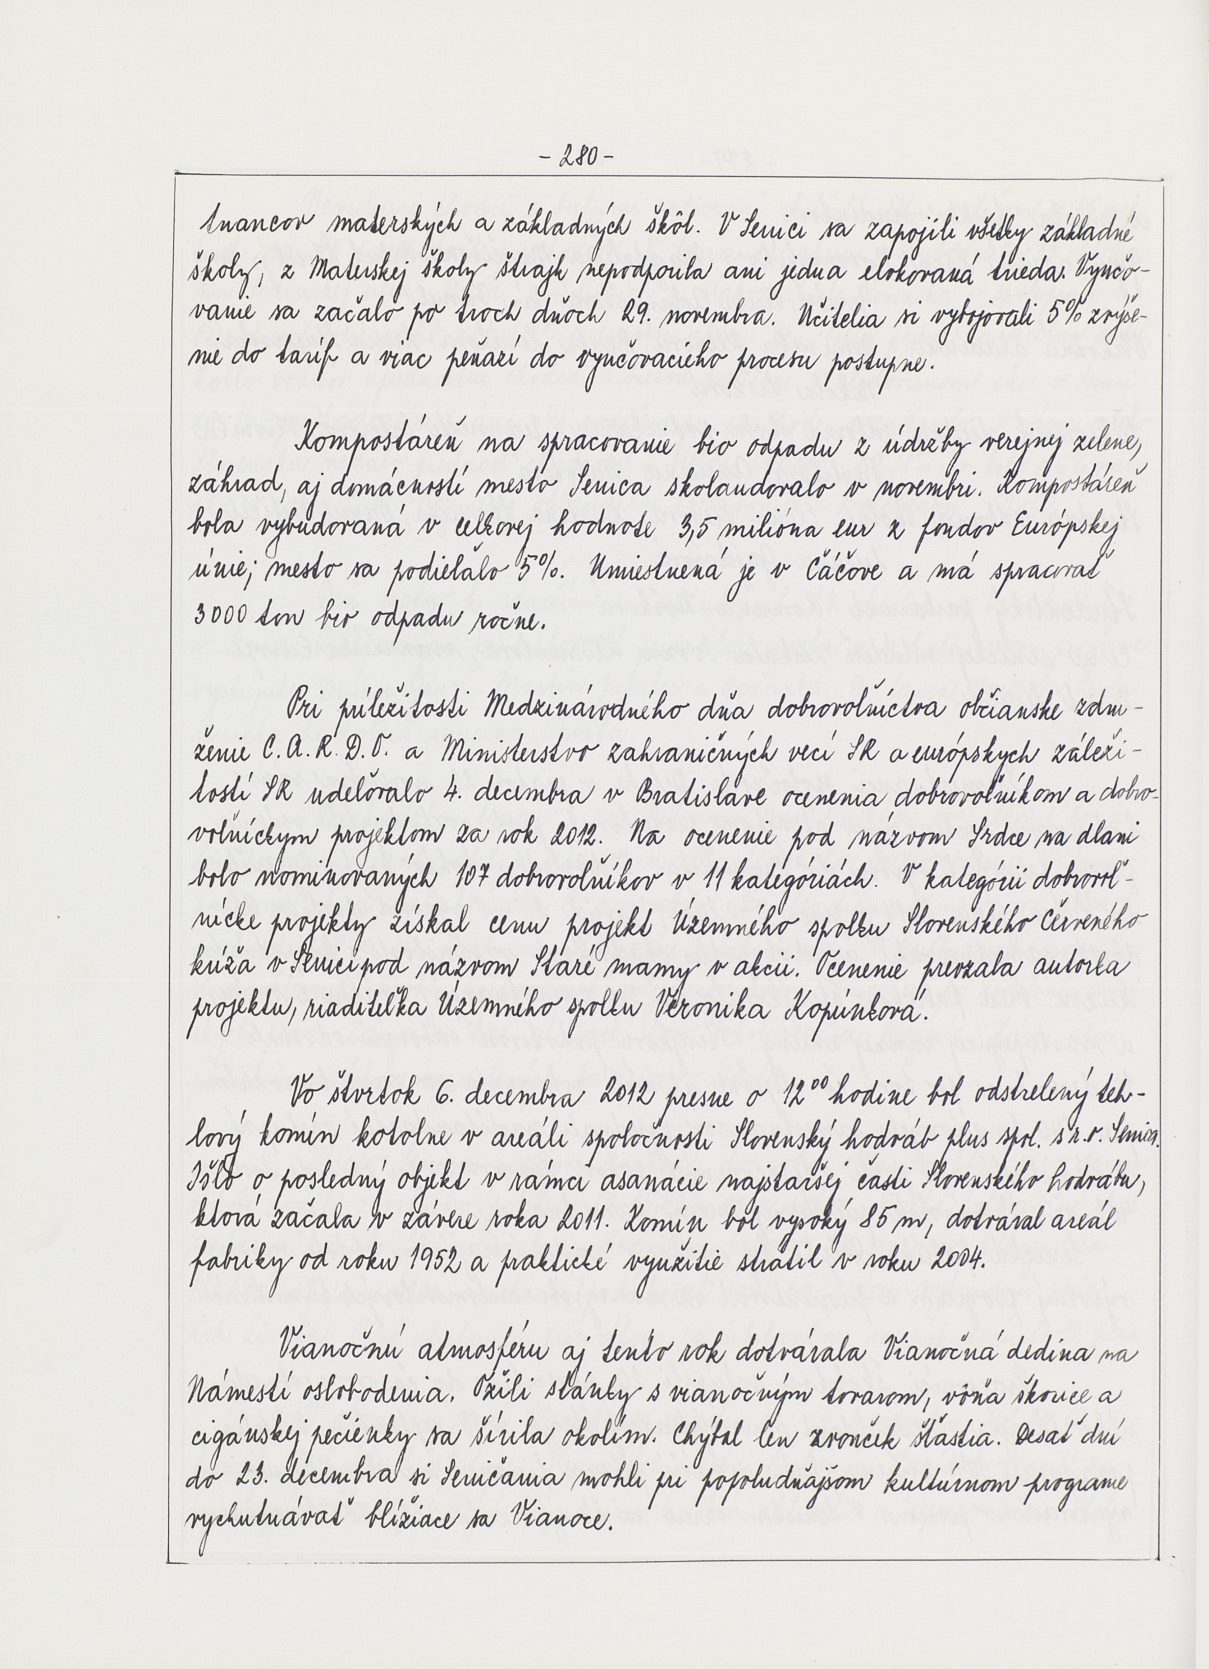 - 280 -
tnancov materských a základných škôl. V Senici sa zapojili všetky základné
školy, z Materskej školy štrajk nepodporila ani jedna elokovaná trieda. Vyučo-
vanie sa začalo po troch dňoch 29. novembra. Učitelia si vybojovali 5% zvýše-
nie do taríf a viac peňazí do vyučovacieho procesu postupne.
Kompostáreň na spracovanie bio odpadu z údržby verejnej zelene,
záhrad, aj domácností mesto Senica skolaudovalo v novembri. Kompostáreň
bola vybudovaná v celkovej hodnote 3,5 milióna eur z fondov Európskej
únie; mesto sa podieľalo 5%. Umiestnená je v Čáčove a má spracovať
3000 ton bio odpadu ročne.
Pri príležitosti Medzinárodného dňa dobrovoľníctva občianske zdru-
ženie C.A.R.D.O. a Ministerstvo zahraničných vecí SR a európskych záleži-
tostí SR udeľovalo 4. decembra v Bratislave ocenenia dobrovoľníkom a dobro-
voľníckym projektom za rok 2012. Na ocenenie pod názvom Srdce na dlani
bolo nominovaných 107 dobrovoľníkov v 11 kategóriách. V kategórii dobrovoľ-
nícke projekty získal cenu projekt Územného spolku Slovenského Červeného
kríža v Senici pod názvom Staré mamy v akcii. Ocenenie prevzala autorka
projektu, riaditeľka Územného spolku Veronika Kopúnková.
Vo štvrtok 6. decembra 2012 presne o 12⁰⁰ hodine bol odstrelený teh-
lový komín kotolne v areáli spoločnosti Slovenský hodváb plus spol. s r.o. Senica.
Išlo o posledný objekt v rámci asanácie najstaršej časti Slovenského hodvábu,
ktorá začala v závere roka 2011. Komín bol vysoký 85 m, dotváral areál
fabriky od roku 1952 a praktické využitie stratil v roku 2004.
Vianočnú atmosféru aj tento rok dotvárala Vianočná dedina na
Námestí oslobodenia. Ožili stánky s vianočným tovarom, vôňa škorice a
cigánskej pečienky sa šírila okolím. Chýbal len zvonček šťastia. Desať dní
do 23. decembra si Seničania mohli pri popoludňajšom kultúrnom programe
vychutnávať blížiace sa Vianoce.